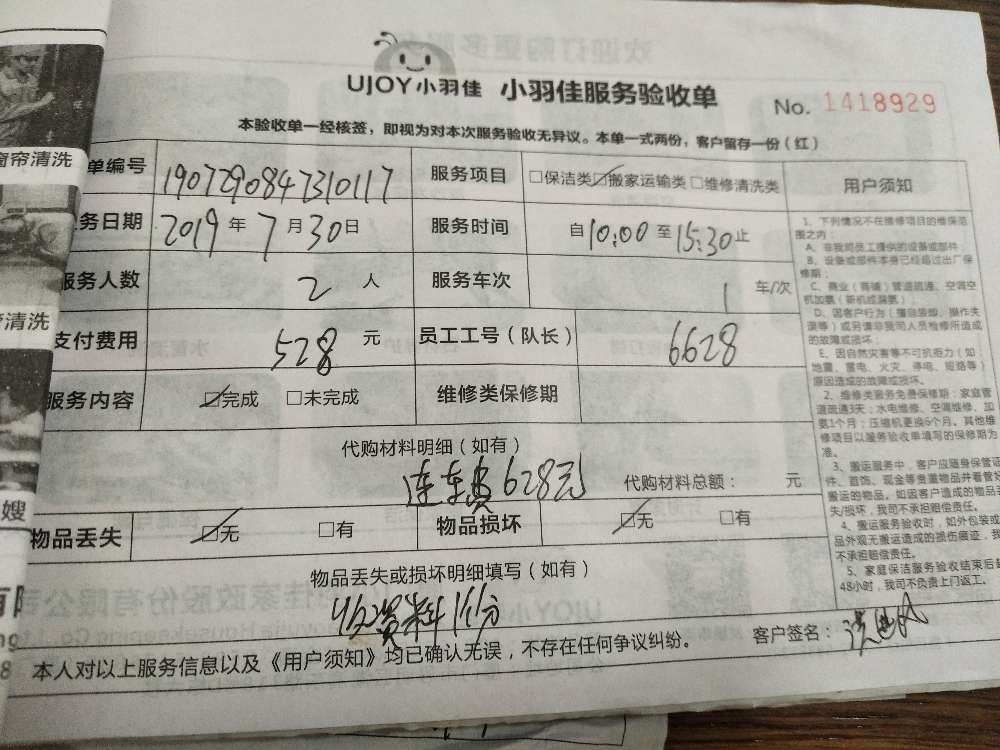 UJOY小羽佳 小羽佳服务验收单 No. 1418929
本验收单一经核签，即视为对本次服务验收无异议。本单一式两份，客户留存一份（红）
单编号 1907290847310117 服务项目 □保洁类 ☑搬家运输类 □维修清洗类
务日期 2019年7月30日 服务时间 自10:00至15:30止
服务人数 2 人 服务车次 1 车/次
支付费用 528 元 员工工号（队长） 6628
服务内容 ☑完成 □未完成 维修类保修期
代购材料明细（如有）
连车费628元 代购材料总额： 元
物品丢失 ☑无 □有 物品损坏 ☑无 □有
物品丢失或损坏明细填写（如有）
收资料
客户签名：
本人对以上服务信息以及《用户须知》均已确认无误，不存在任何争议纠纷。
用户须知
1、下列情况不在维修项目的维保范
围之内：
A、非我司员工提供的设备或部件
B、设备或部件本身已经超过出厂保
修期；
C、商业（商铺）管道疏通、空调空
机加氨（新机或漏氨）；
D、因客户行为（擅自装卸、操作失
误等）或另请非我司人员检修所造成
的故障或损坏；
E、因自然灾害等不可抗拒力（如：
地震、雷电、火灾、停电、短路等）
原因造成的故障或损坏。
2、维修类服务免费保修期：家庭管
道疏通3天；水电维修、空调维修、加
氨1个月；压缩机更换6个月。其他维
修项目以服务验收单填写的保修期为
准。
3、搬运服务中，客户应随身保管证
件、首饰、现金等贵重物品并看管好
搬运的物品。如因客户造成的物品丢
失/损坏，我司不承担赔偿责任。
4、搬运服务验收时，如外包装或
品外观无搬运造成的损伤痕迹，我
不承担赔偿责任。
5、家庭保洁服务验收结束后超
48小时，我司不负责上门返工。
窗帘清洗
清洗
嫂